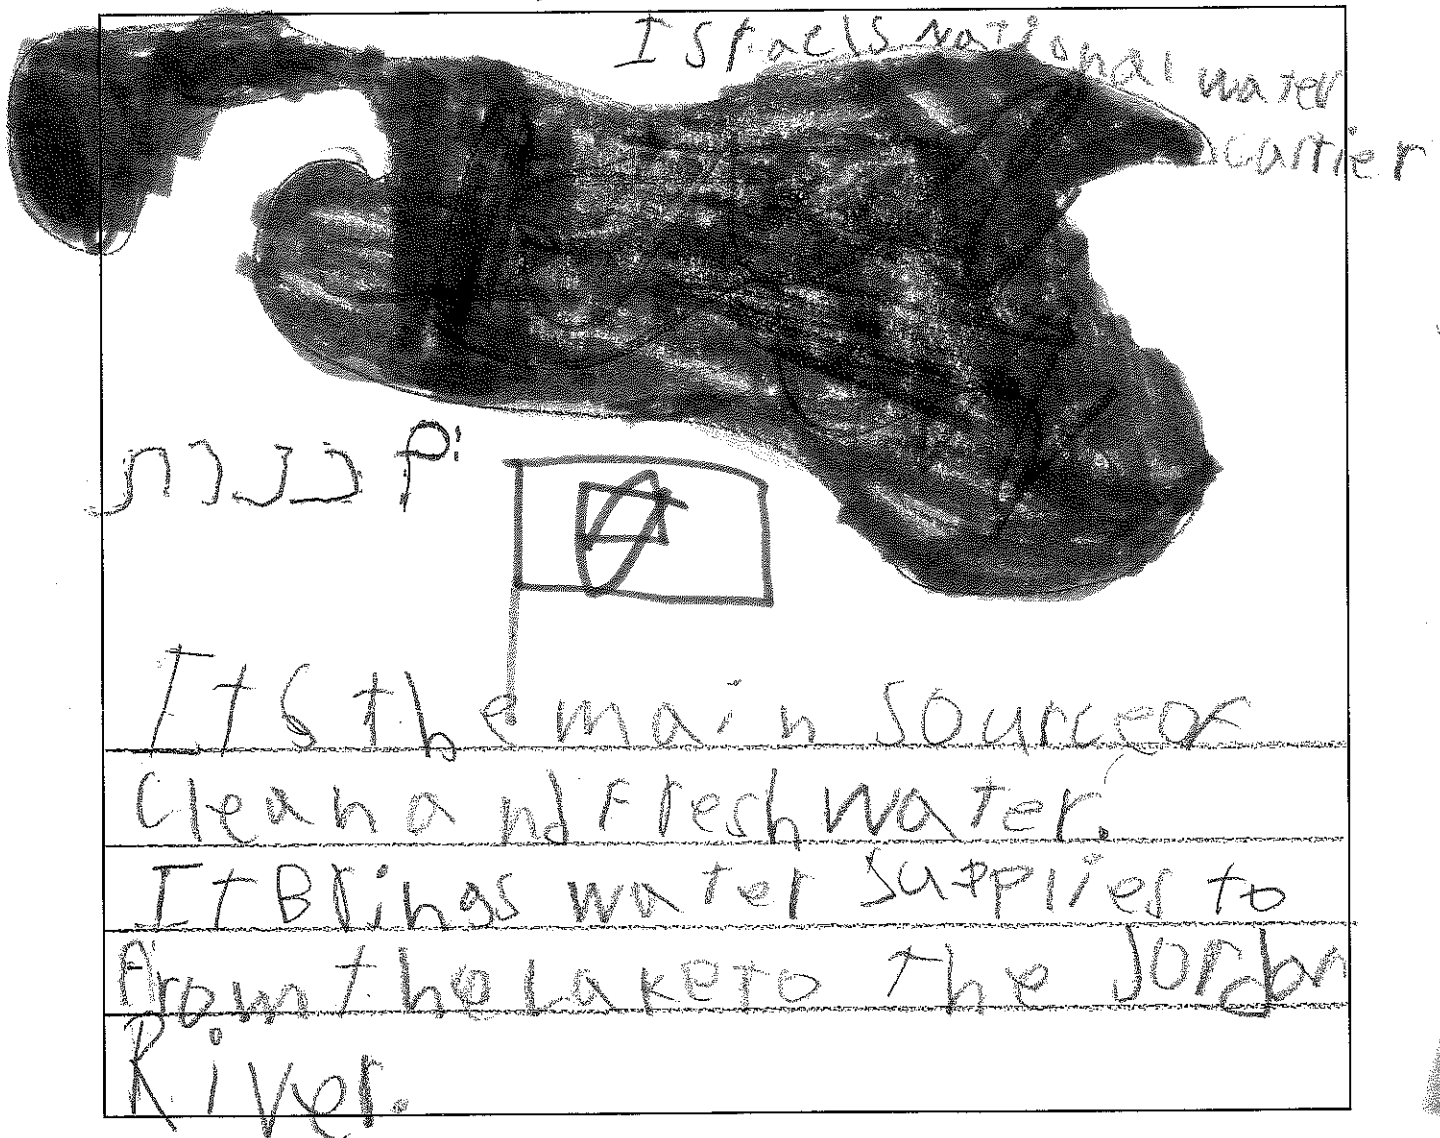 Israels National water
carrier
ים כנרת
Its the main source of
Clean and Fresh water.
It Brings water supplies to
From the Lake to the Jordan
River.